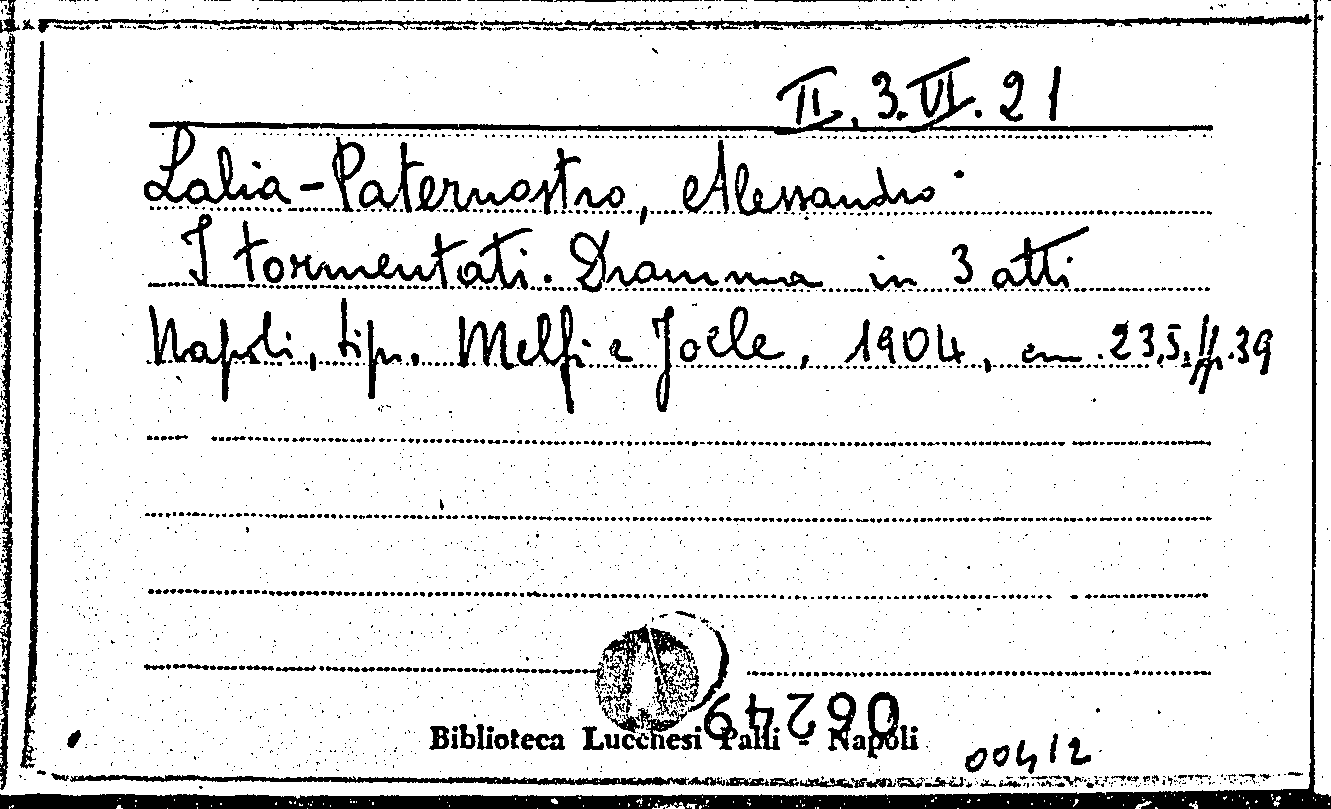 II.3.VI.21
Lalia-Paternostro, Alessandro
I tormentati. Dramma in 3 atti
Napoli, tip. Melfi e Joele, 1904, cm. 23,5, pp. 39
Biblioteca Lucchesi Palli - Napoli
00412